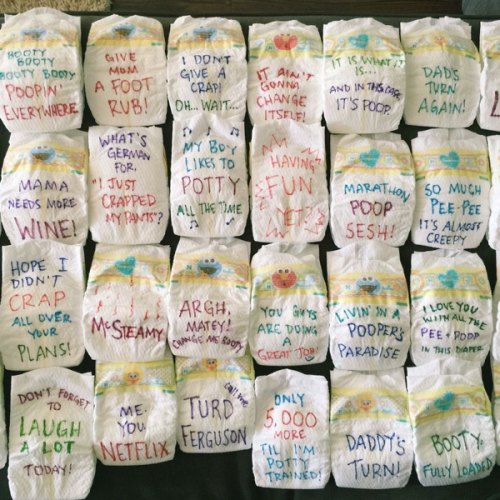 BOOTY
BOOTY
BOOTY BOOTY
POOPIN'
EVERYWHERE
GIVE
MOM
A FOOT
RUB!
I DON'T
GIVE A
CRAP!
OH... WAIT...
IT AIN'T
GONNA
CHANGE
ITSELF!
IT IS WHAT IT
IS...
AND IN THIS CASE
IT'S POOP.
DAD'S
TURN
AGAIN!
MAMA
NEEDS MORE
WINE!
WHAT'S
GERMAN
FOR,
"I JUST
CRAPPED
MY PANTS"?
MY BOY
LIKES TO
POTTY
ALL THE TIME
HAVING
FUN
YET?
MARATHON
POOP
SESH!
SO MUCH
PEE-PEE
IT'S ALMOST
CREEPY
HOPE I
DIDN'T
CRAP
ALL OVER
YOUR
PLANS!
McSTEAMY
ARGH,
MATEY!
CHANGE ME BOOTY
YOU GUYS
ARE DOING
A
GREAT JOB!
LIVIN' IN A
POOPER'S
PARADISE
I LOVE YOU
WITH ALL THE
PEE + POOP
IN THIS DIAPER
DON'T FORGET
TO
LAUGH
A LOT
TODAY!
ME.
YOU.
NETFLIX
call me
TURD
FERGUSON
ONLY
5,000
MORE
TIL I'M
POTTY
TRAINED!
DADDY'S
TURN!
BOOTY,
FULLY LOADED